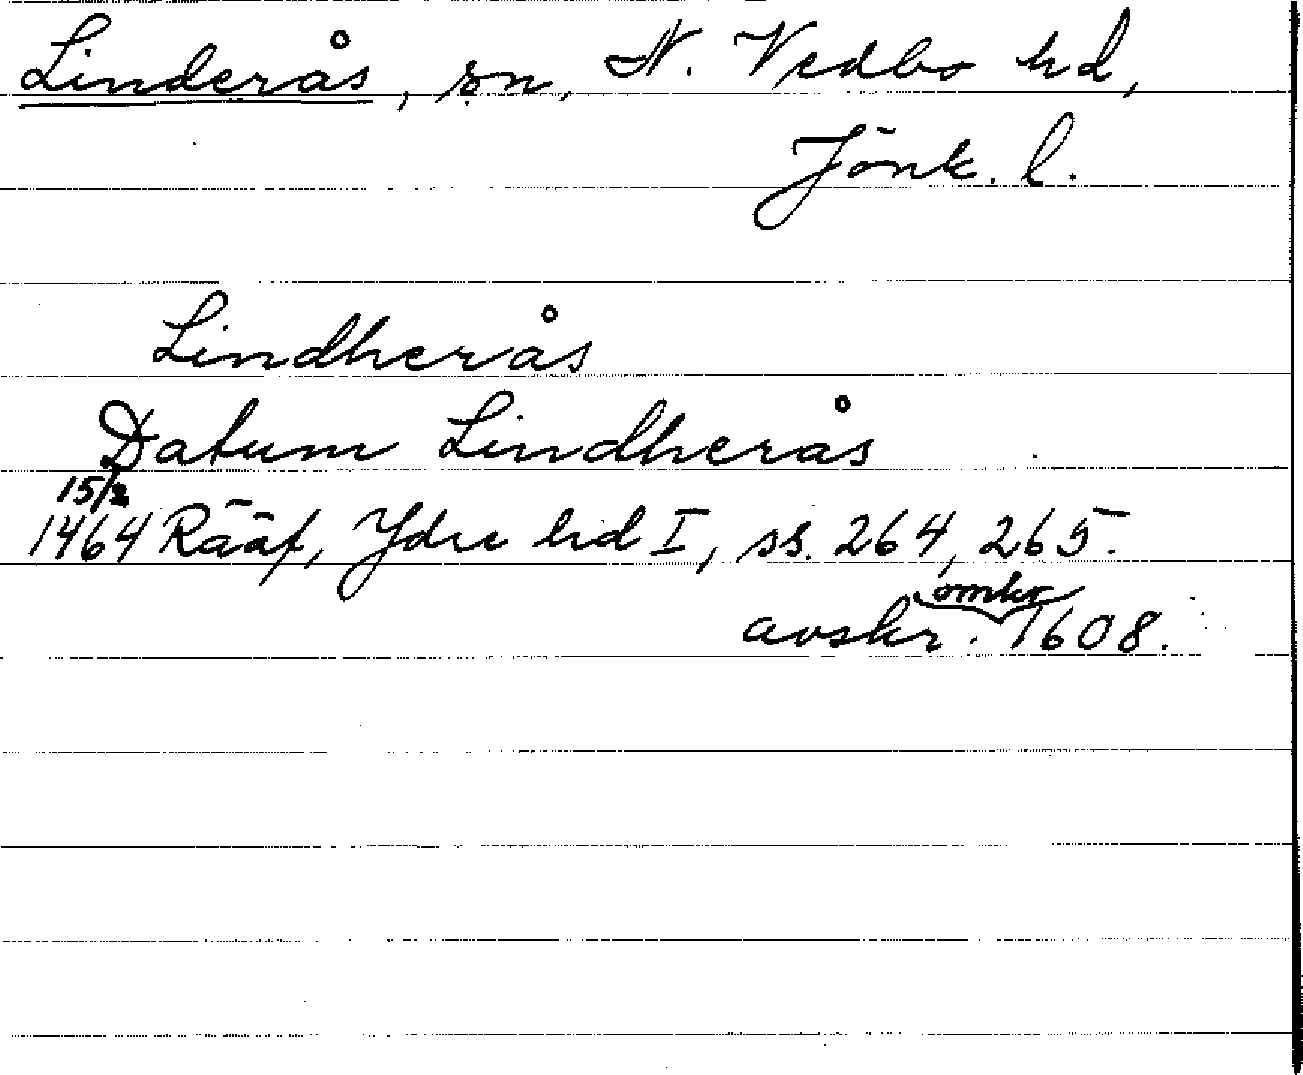 Linderås, sn, N. Vedbo hd,
Jönk. l.
Lindherås
Datum Lindherås
15/2
1464 Rääf, Ydre hd I, ss. 264, 265.
omkr
avskr. 1608.